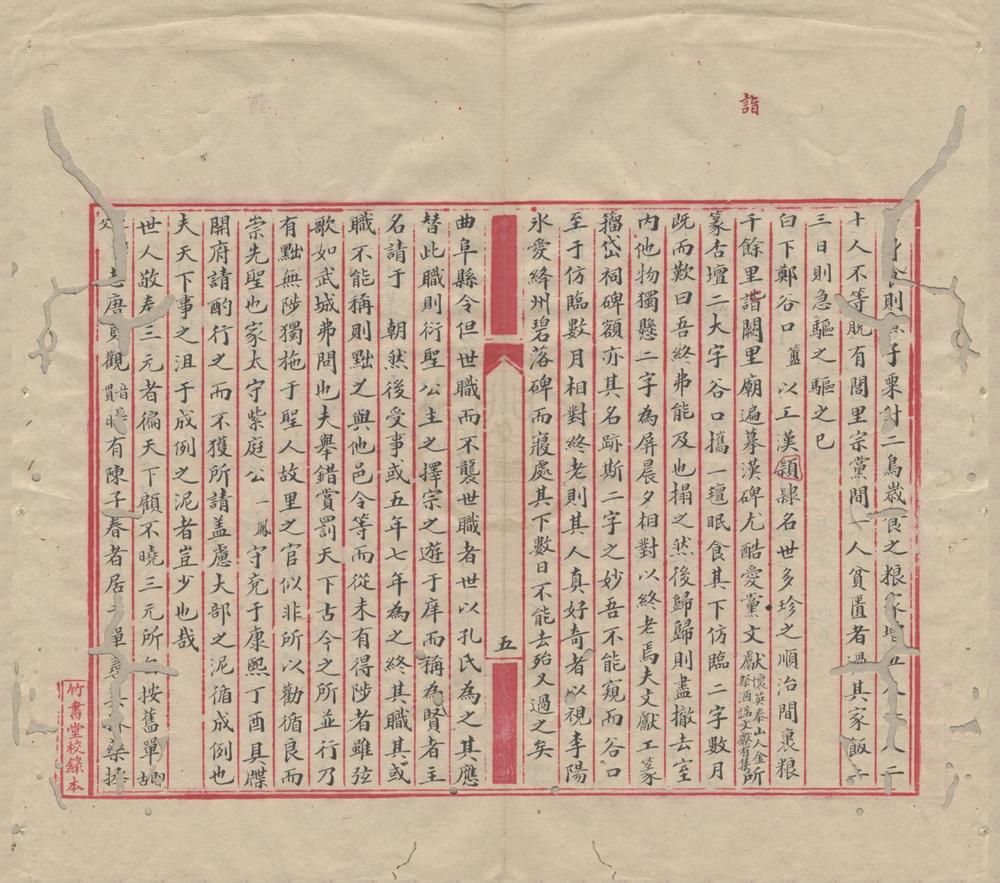 詣
則 子 栗 二鳥歲食之粮
十人不等脫有閭里宗黨間一人貧匱者過其家飯
三日則急驅之驅之已
白下鄭谷口簠以工漢隸名世多珍之順治間裹粮
千餘里詣闕里廟遍摹漢碑尤酷愛黨文獻懷英泰山人金祭酒諡文獻有集所
篆杏壇二大字谷口攜一氊眠食其下仿臨二字數月
既而歎曰吾終弗能及也搨之然後歸歸則盡撤去室
內他物獨懸二字為屏晨夕相對以終老焉夫文獻工篆
籀岱祠碑額亦其名跡斯二字之妙吾不能窺而谷口
至于仿臨數月相對終老則其人真好奇者以視李陽
氷愛絳州碧落碑而寢處其下數日不能去殆又過之矣
五
曲阜縣令但世職而不襲世職者世以孔氏為之其應
替此職則衍聖公主之擇宗之遊于庠而稱為賢者主
名請于 朝然後受事或五年七年為之終其職其或
職不能稱則黜之與他邑令等而從未有得陟者雖弦
歌如武城弗問也夫舉錯賞罰天下古今之所並行乃
有黜無陟獨施于聖人故里之官似非所以勸循良而
崇先聖也家太守紫庭公一鳳守兖于康熙丁酉具牒
開府請酌行之而不獲所請盖慮大部之泥循成例也
夫天下事之沮于成例之泥者豈少也哉
世人敬奉三元者徧天下顧不曉三元所 按舊單
志唐貞觀 時有陳子春者居 單
竹書堂校錄本